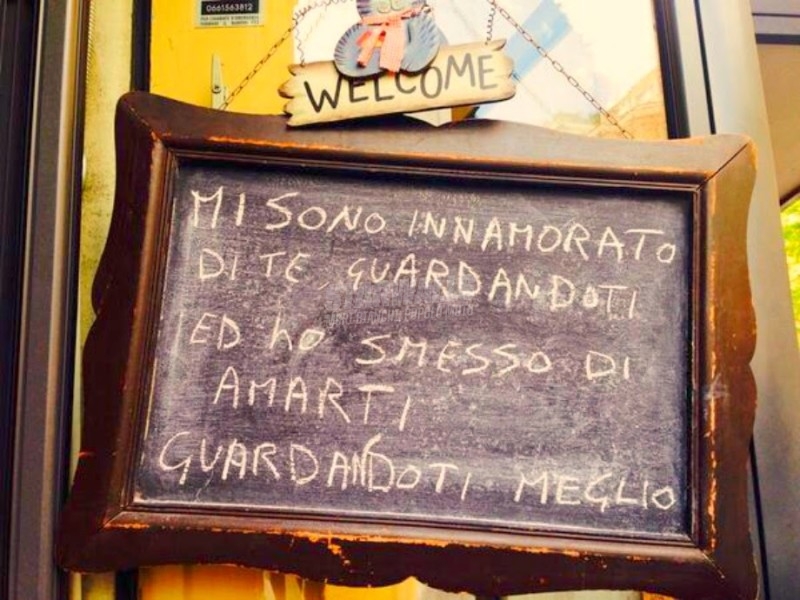 0661563812
WELCOME
MI SONO INNAMORATO
DI TE, GUARDANDOTI
ED HO SMESSO DI
AMARTI
GUARDANDOTI MEGLIO